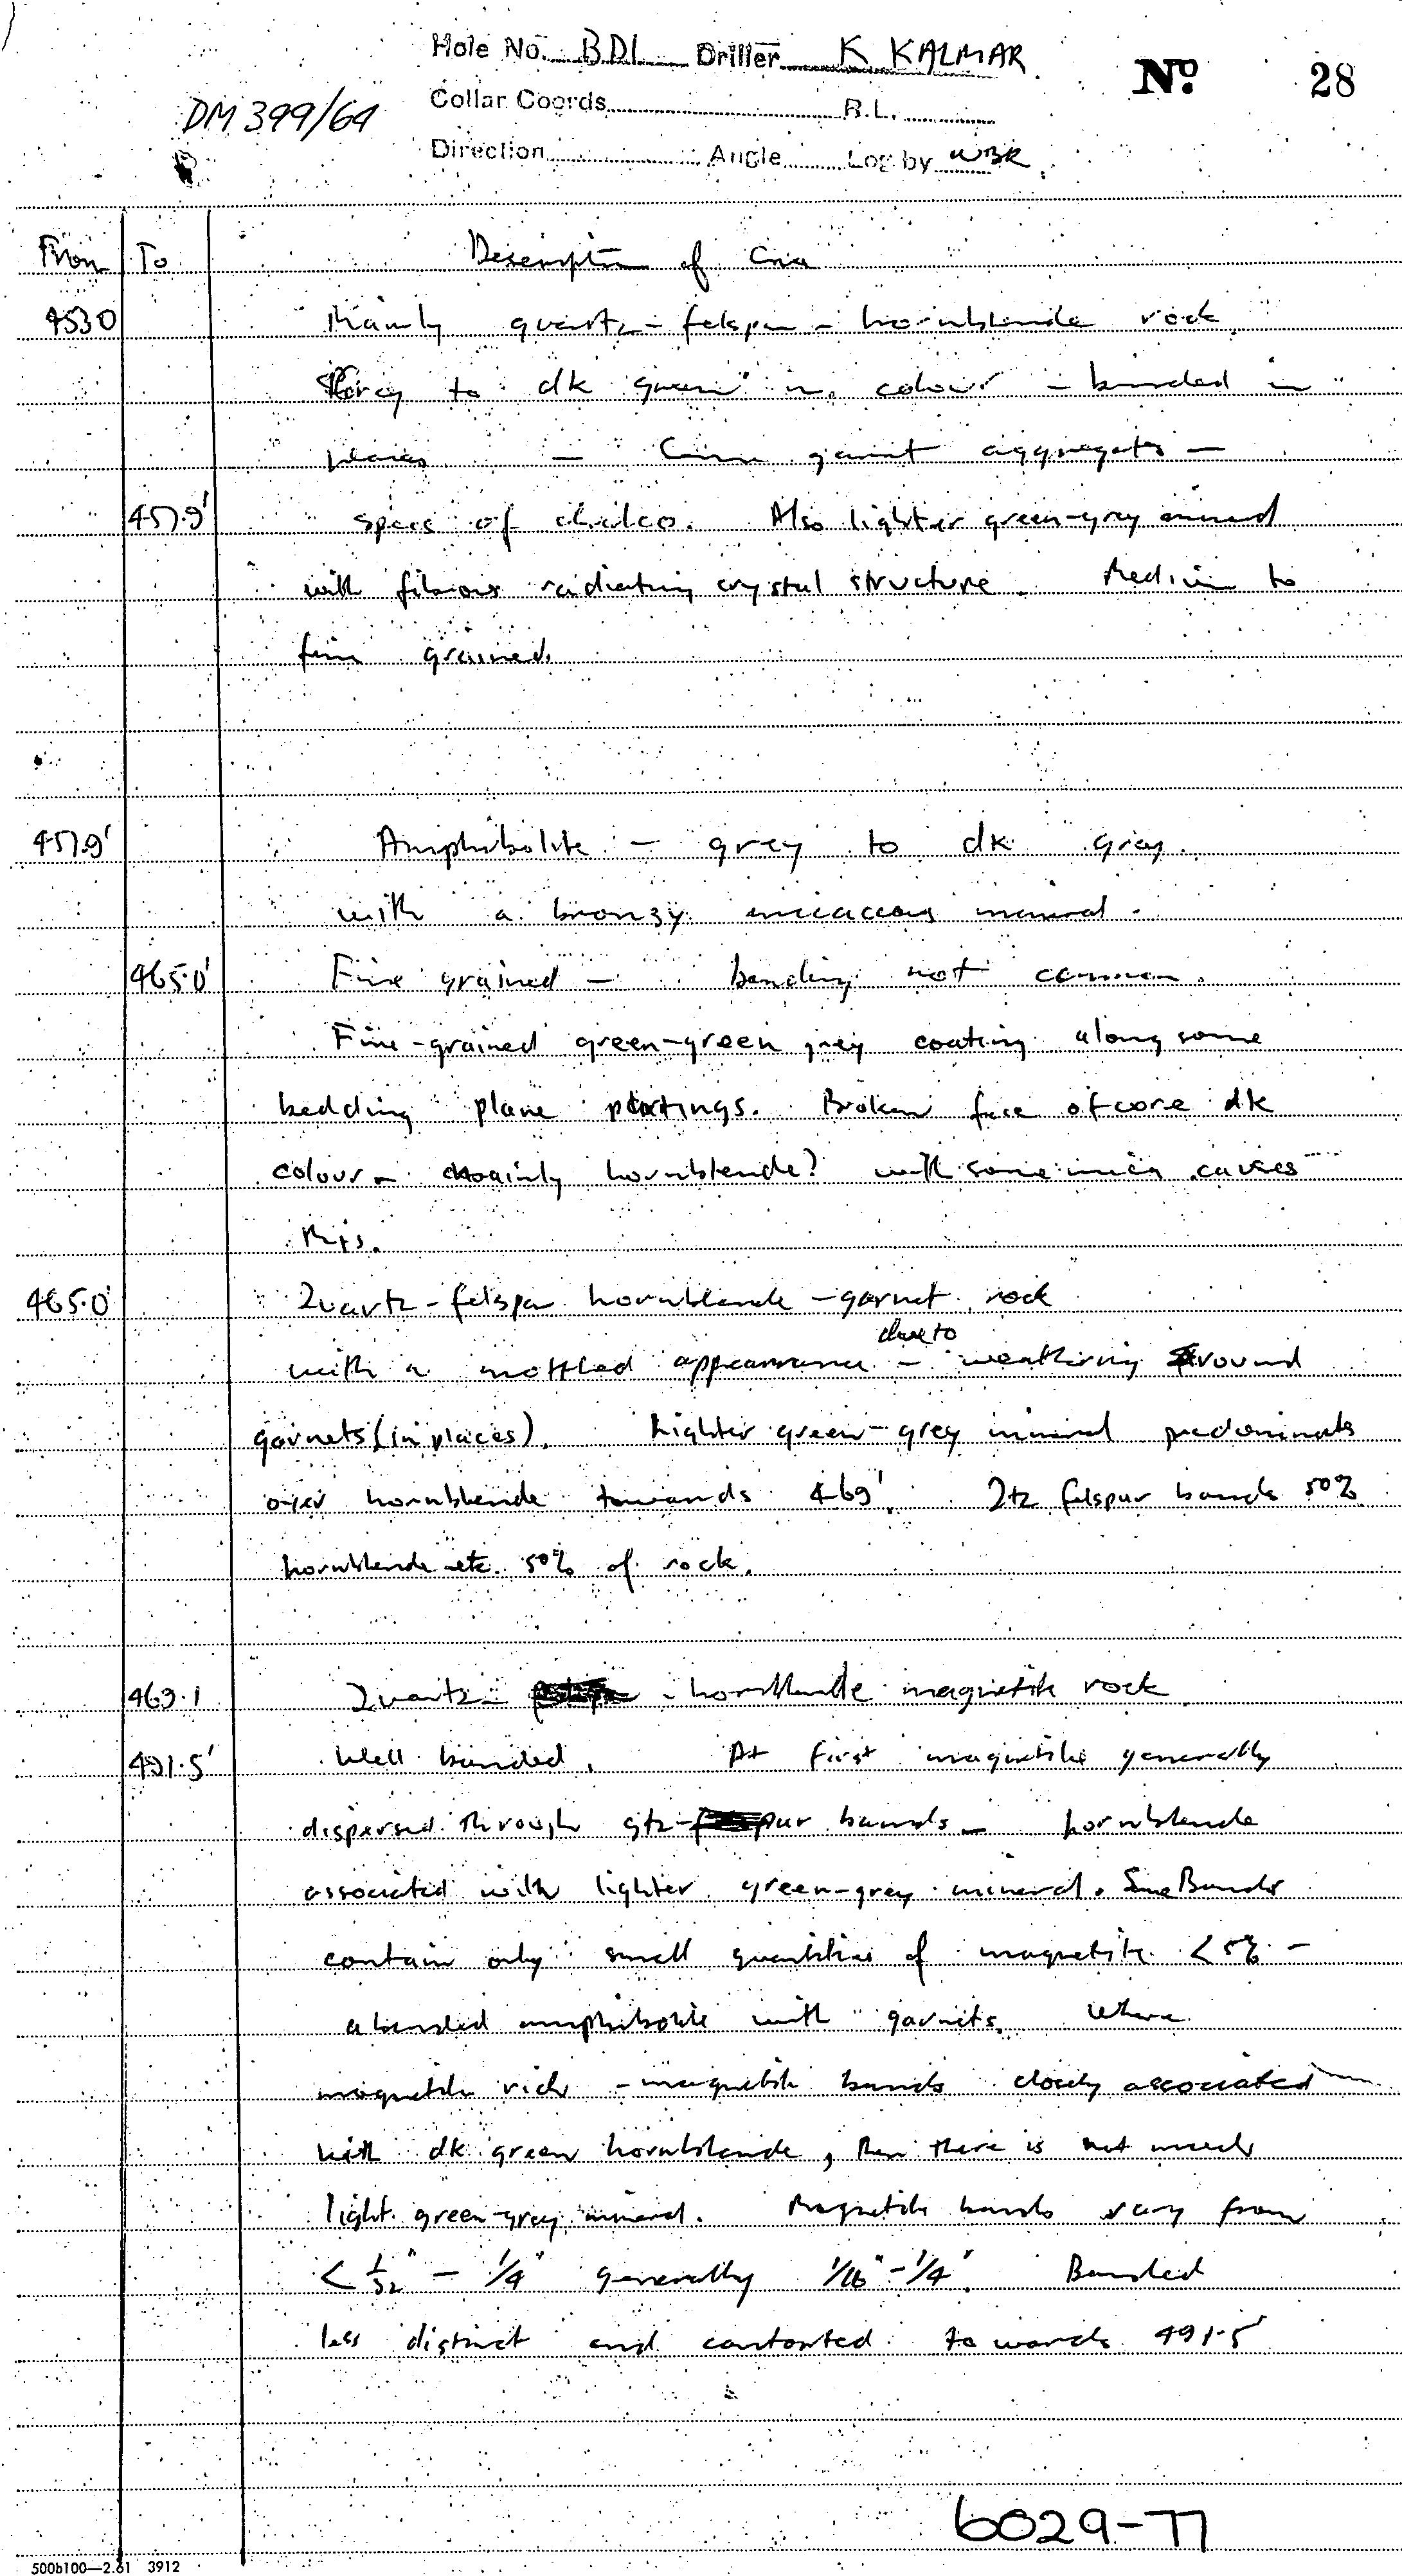 Hole No. BD1 Driller K KALMAR
Nº 28
DM 399/69
Collar Coords. R.L.
Direction Angle Log by WBR
From To Description of Core
453.0 Mainly quartz - felspar - hornblende rock.
Grey to dk green in colour - banded in
places - garnet aggregates -
457.9' specs of chalco. Also lighter green-grey mineral
with fibrous radiating crystal structure. Medium to
fine grained.
457.9' Amphibolite - grey to dk grey.
with a bronzy micaceous mineral.
465.0' Fine grained - banding not common.
Fine-grained green-green grey coating along some
bedding plane partings. Broken face of core dk
colour - mainly hornblende? with some mica causes
this.
465.0' Quartz - felspar hornblende - garnet rock
due to
with a mottled appearance - weathering around
garnets (in places). Lighter green-grey mineral predominates
over hornblende towards 469'. Qtz felspar bands 50%
hornblende etc. 50% of rock.
469.1 Quartz - - hornblende magnetite rock
491.5' Well banded. At first magnetite generally
dispersed through qtz- bands - hornblende
associated with lighter green-grey mineral. Some Bands
contain only small quantities of magnetite <5% -
a banded amphibolite with garnets. Where
magnetite rich - magnetite bands closely associated
with dk green hornblende, then there is not much
light green-grey mineral. Magnetite bands vary from
< 1/32" - 1/4" generally 1/16" - 1/4". Banded
less distinct and contorted towards 491.5'
6029-77
500b100—2.61 3912